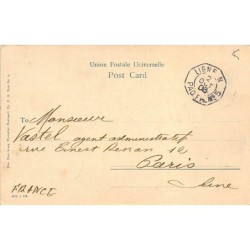 Union Postale Universelle
Post Card
LIGNE N
PAQ. FR. Nº 5
To Monsieur
Vastel agent administratif
rue Ernest Renan 12
Paris
Seine
FRANCE